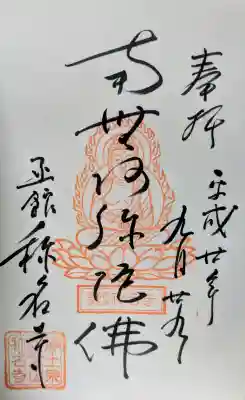 奉拝
平成廿年
九月廿九
南無阿弥陀佛
函館 称名寺